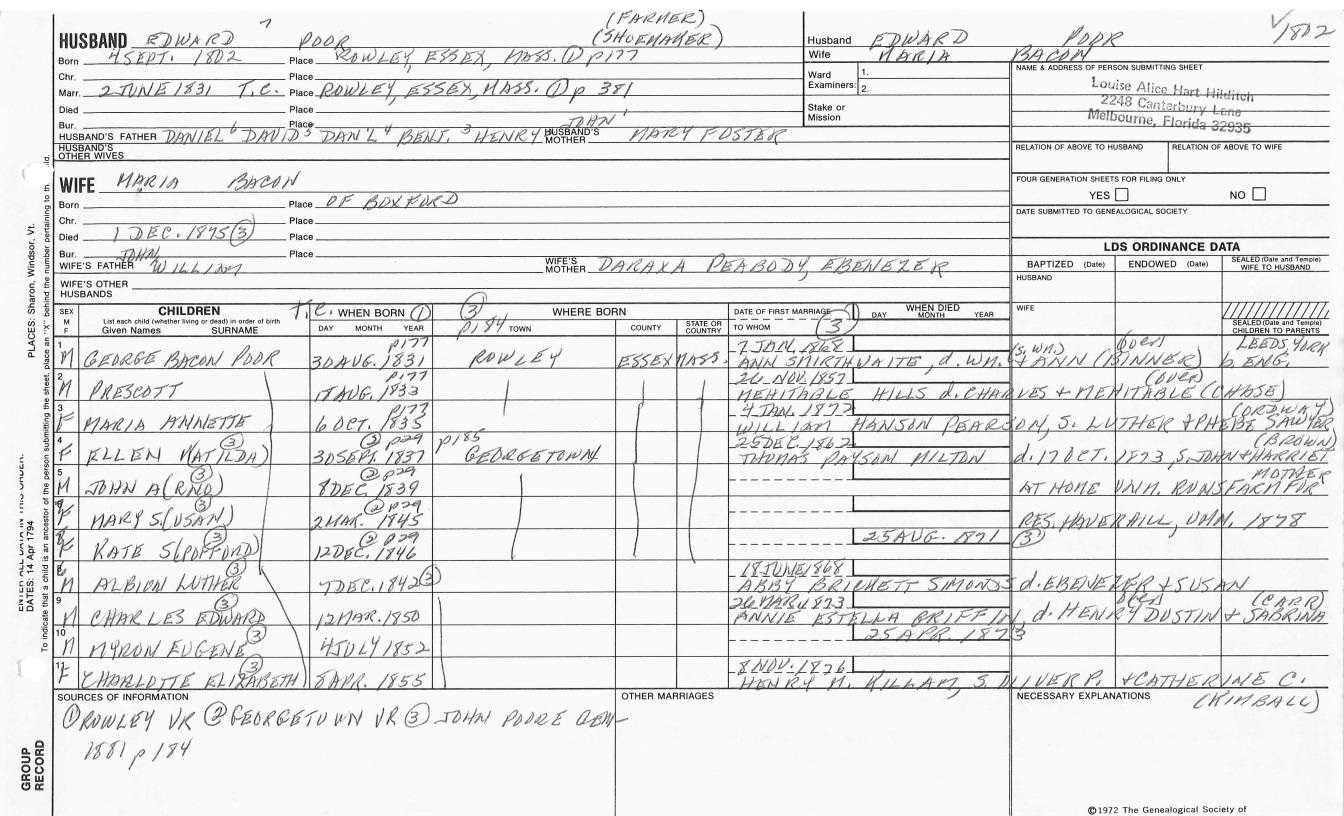 (FARMER)
HUSBAND EDWARD 7 POOR (SHOEMAKER)
Born 4 SEPT. 1802 Place ROWLEY, ESSEX, MASS. ① p177
Chr. Place
Marr. 2 JUNE 1831 T.C. Place ROWLEY, ESSEX, MASS. ① p 381
Died Place
Bur. Place JOHN 1
HUSBAND'S FATHER DANIEL 6 DAVID 5 DAN'L 4 BENJ. 3 HENRY 2 HUSBAND'S MOTHER MARY FOSTER
HUSBAND'S OTHER WIVES
Husband EDWARD POOR √1802
Wife MARIA BACON
Ward Examiners: 1.
2.
Stake or Mission
NAME & ADDRESS OF PERSON SUBMITTING SHEET
Louise Alice Hart Hilditch
2248 Canterbury Lane
Melbourne, Florida 32935
RELATION OF ABOVE TO HUSBAND RELATION OF ABOVE TO WIFE
FOUR GENERATION SHEETS FOR FILING ONLY
YES NO
DATE SUBMITTED TO GENEALOGICAL SOCIETY
WIFE MARIA BACON
Born Place OF BOXFORD
Chr. Place
Died 1 DEC. 1875 ③ Place
Bur. Place
WIFE'S FATHER JOHN WILLIAM WIFE'S MOTHER DARAXA PEABODY, EBENEZER
WIFE'S OTHER HUSBANDS
LDS ORDINANCE DATA
BAPTIZED (Date) ENDOWED (Date) SEALED (Date and Temple) WIFE TO HUSBAND
HUSBAND
WIFE
SEALED (Date and Temple) CHILDREN TO PARENTS
SEX M F
CHILDREN
List each child (whether living or dead) in order of birth
Given Names SURNAME
T.C. WHEN BORN ①
DAY MONTH YEAR
③ p184 WHERE BORN
TOWN COUNTY STATE OR COUNTRY
DATE OF FIRST MARRIAGE
TO WHOM ③
WHEN DIED
DAY MONTH YEAR
1 M GEORGE BACON POOR p177 30 AUG. 1831 ROWLEY ESSEX MASS. 7 JAN. 1868 (S, WM.) (over) LEEDS, YORK
ANN SMIRTHWAITE, d. WM. & ANN (BINNER) b. ENG.
2 M PRESCOTT p177 17 AUG. 1833 26 NOV. 1857 (over)
MEHITABLE HILLS d. CHARLES & MEHITABLE (CHASE)
3 F MARIA ANNETTE p177 6 OCT. 1835 4 JAN. 1872 (ORDWAY)
WILLIAM HANSON PEARSON, S. LUTHER & PHEBE SAWYER
4 F ELLEN MATILDA) ③ ② p29 30 SEPT. 1837 p185 GEORGETOWN 25 DEC. 1862 (BROWN)
THOMAS PAYSON MILTON d. 17 OCT. 1873, S. JOHN & HARRIET
5 M JOHN A(RNO) ③ ② p29 8 DEC. 1839 MOTHER
AT HOME UNM. RUNS FARM FOR
F MARY S(USAN) ③ ② p29 2 MAR. 1845 RES. HAVERHILL, UNM. 1878
F KATE S(POFFORD) ③ ② p29 12 DEC. 1846 25 AUG. 1871 ③
M ALBION LUTHER ③ 7 DEC. 1842 ③ 18 JUNE 1868
ABBY BRICHETT SIMONDS d. EBENEZER & SUSAN
9 M CHARLES EDWARD ③ 12 MAR. 1850 26 MAR. 1873 over (CARR)
ANNIE ESTELLA GRIFFIN, d. HENRY DUSTIN & SABRINA
10 M MYRON EUGENE ③ 4 JULY 1852 25 APR. 1873
11 F CHARLOTTE ELIZABETH ③ 8 APR. 1855 8 NOV. 1876
HENRY M. KILLAM, S. OLIVER P. & CATHERINE C.
(KIMBALL)
SOURCES OF INFORMATION OTHER MARRIAGES NECESSARY EXPLANATIONS
① ROWLEY VR ② GEORGETOWN VR ③ JOHN POORE GEN—
1881 p 184
PLACES: Sharon, Windsor, Vt.
DATES: 14 Apr 1794
To indicate that a child is an ancestor of the person submitting the sheet, place an "X" behind the number pertaining to th
GROUP RECORD
©1972 The Genealogical Society of